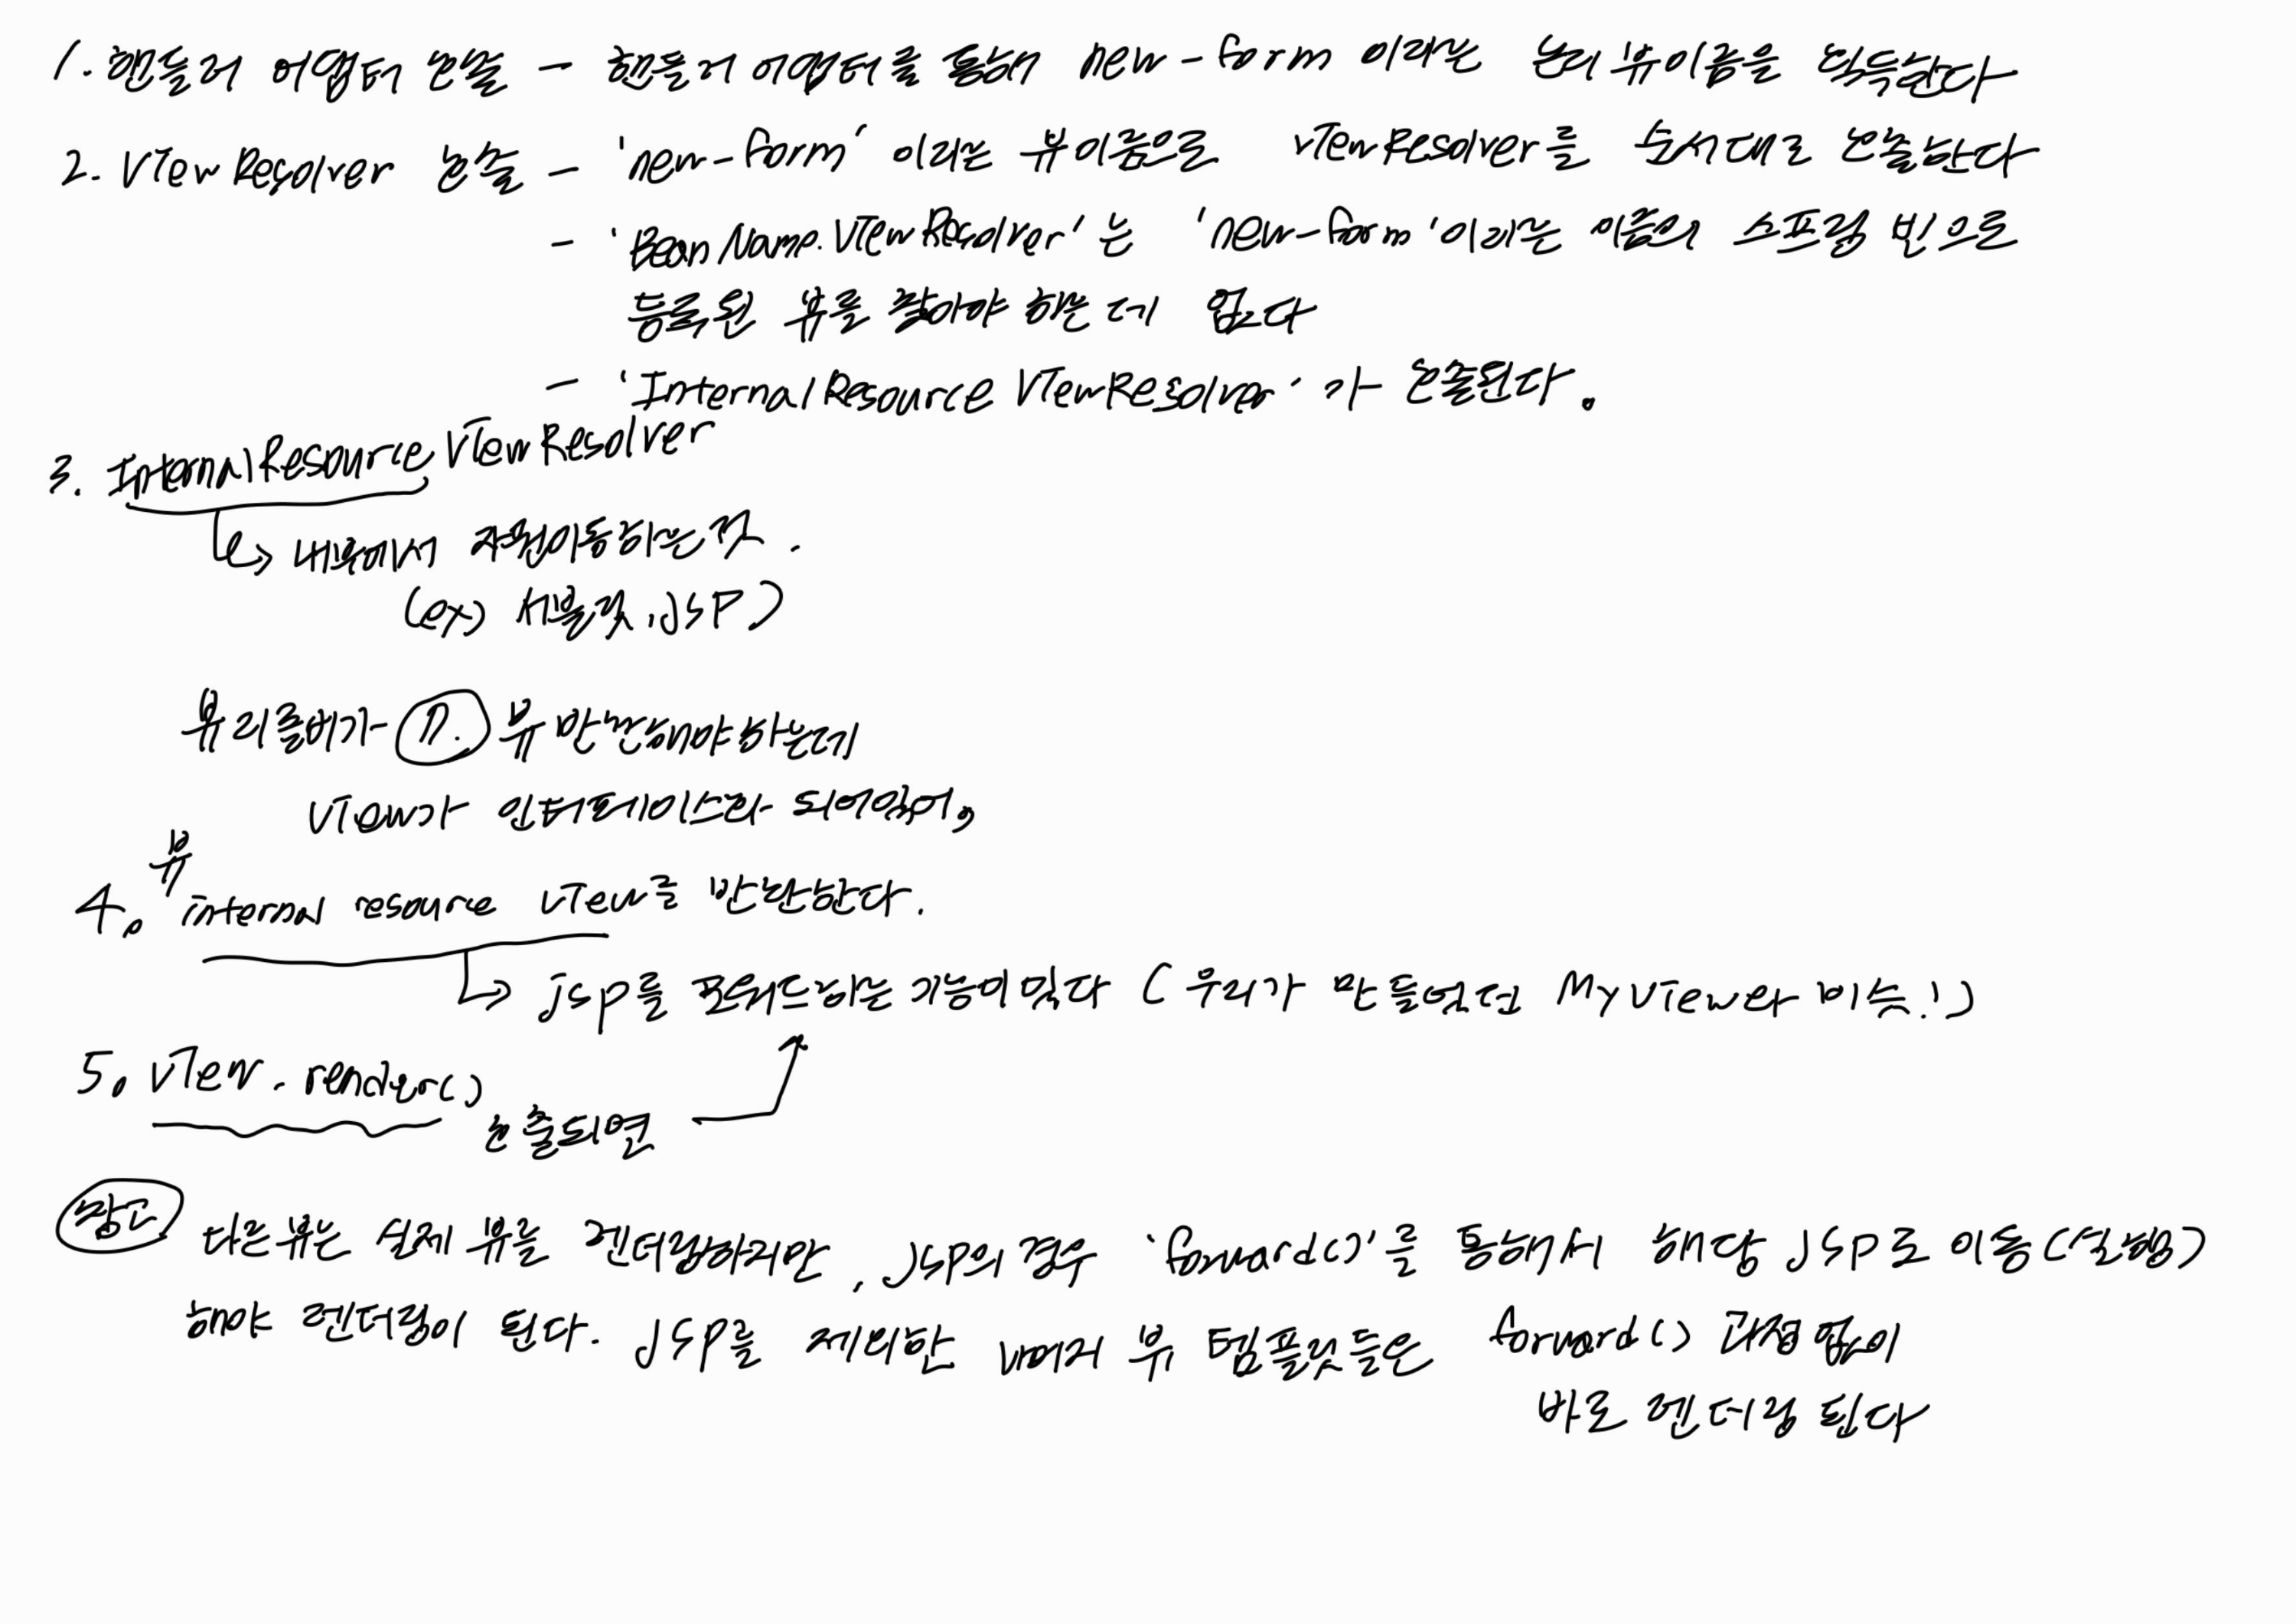 1. 핸들러 어댑터 호출 - 핸들러 어댑터를 통해 new-form 이라는 논리 뷰이름을 획득한다
2. ViewResolver 호출 - 'new-form' 이라는 뷰 이름으로 viewResolver를 순서대로 호출한다
- 'BeanNameViewResolver'는 'new-form'이라는 이름의 스프링 빈으로
등록된 뷰를 찾아야 하는데 없다
- 'InternalResourceViewResolver'가 호출된다.
3. InternalResourceViewResolver
↳ 내부에서 자원이동하는것.
(ex) 서블릿, JSP)
뷰 리졸버가 뷰 반환해야하는데
View가 인터페이스라 되어있어,
뷰
4. internal resource view를 반환한다.
↳ jsp를 포워드하는 기능이 있다 (우리가 만들었던 MyView와 비슷!)
5. view.render()
호출되면
참고 다른뷰는 실제 뷰를 렌더링하지만, JSP의 경우 'forward()'를 통해서 해당 JSP로 이동(실행)
해야 렌더링이 된다. JSP를 제외한 나머지 뷰 템플릿들은 forward() 과정 없이
바로 렌더링 된다